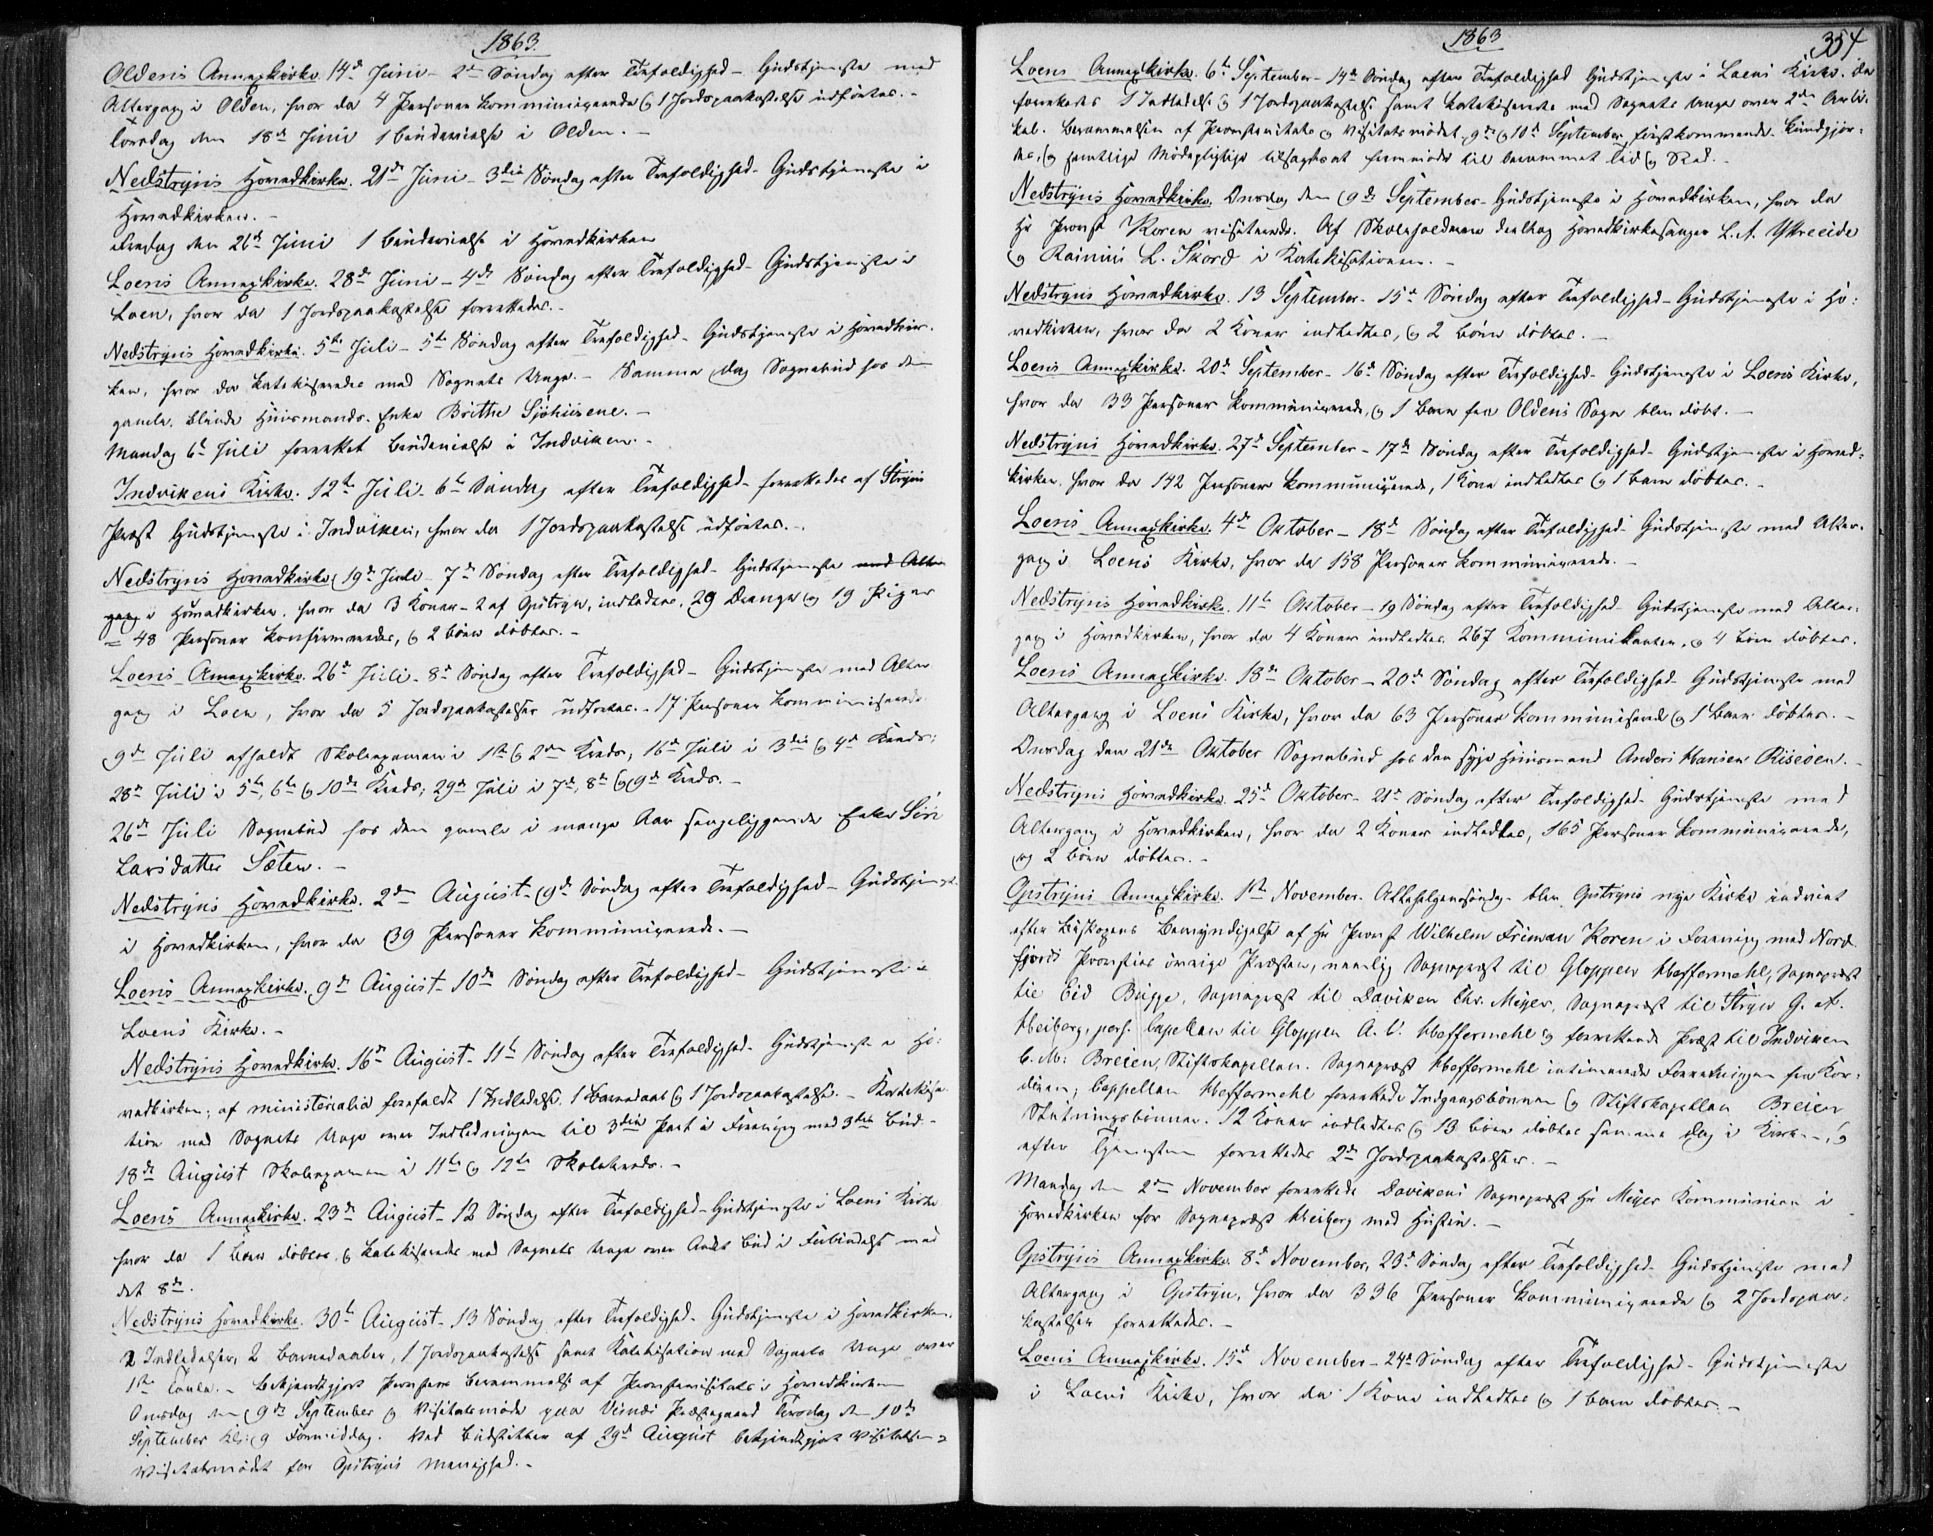 1863.
Oldens Annexkirke. 14d Juni - 2d Søndag efter Trefoldighed - Gudstjeneste med
Altergang i Olden, hvor da 4 Personer kommunicerede & 1 Jordspaakastelse udførtes. -
Torsdag den 18de Juni 1 Brudevielse i Olden. -
Nedstryns Hovedkirke. 21de Juni - 3die Søndag efter Trefoldighed - Gudstjeneste i
Hovedkirken. -
Fredag den 26d Juni 1 Brudevielse i Hovedkirken
Loens Annexkirke. 28de Juni - 4de Søndag efter Trefoldighed - Gudstjeneste i
Loen, hvor da 1 Jordspaakastelse forrettedes. -
Nedstryns Hovedkirke. 5te Juli - 5te Søndag efter Trefoldighed - Gudstjeneste i Hovedkir-
ken, hvor da katekiseredes med Sognets Unge. - Samme Dag Sognebud hos den
gamle, blinde Huusmands-Enke Brithe Sjøhusene. -
Mandag 6t Juli forrettet Brudevielse i Indviken. -
Indvikens Kirke. 12te Juli - 6te Søndag efter Trefoldighed - forrettedes af Stryns
Præst Gudstjeneste i Indviken, hvor da 1 Jordspaakastelse udførtes. -
Nedstryns Hovedkirke 19de Juli - 7de Søndag efter Trefoldighed - Gudstjeneste med Alter
gang i Hovedkirken, hvor da 3 Koner - 2 af Opstryn, indlededes, 29 Drenge & 19 Piger
= 48 Personer konfirmeredes, & 2 Børn døbtes. -
Loens Annexkirke. 26d Juli - 8d Søndag efter Trefoldighed - Gudstjeneste med Alter
gang i Loen, hvor da 5 Jordspaakastelser udførtes. - 17 Personer kommunicerede
9de Juli afholdt Skoleexamen i 1ste & 2den Kreds; 16d Juli i 3die & 4d Kreds;
28de Juli i 5te, 6te & 10de Kreds; 29de Juli i 7de, 8de & 9de Kreds. -
26de Juli Sognebud hos den gamle i mange Aar sengeliggende Enke Siri
Larsdatter Sæten. -
Nedstryns Hovedkirke. 2den August - 9de Søndag efter Trefoldighed - Gudstjeneste
i Hovedkirken, hvor da 39 Personer kommunicerede. -
Loens Annexkirke. 9de August - 10de Søndag efter Trefoldighed - Gudstjeneste i
Loens Kirke. -
Nedstryns Hovedkirke. 16de August - 11te Søndag efter Trefoldighed - Gudstjeneste i Ho-
vedkirken; af ministerialia forefaldt 1 Indledelse, 1 Barnedaab & 1 Jordspaakastelse. - Katekisa
tion med Sognets Unge over Indledningen til 3die Part i Forening med 3die Bud. -
18de August Skoleexamen i 11te & 12te Skolekreds. -
Loens Annexkirke. 23de August - 12 Søndag efter Trefoldighed - Gudstjeneste i Loens Kirke
hvor da 1 Barn døbtes & katekiseredes med Sognets Unge over Andet Bud i Forbindelse med
det 8de.
Nedstryns Hovedkirke. 30te August - 13 Søndag efter Trefoldighed - Gudstjeneste i Hovedkirken.
2 Indledelser, 2 Barnedaaber, 1 Jordspaakastelse samt Katekisation med Sognets Unge over
1ste Tavle. - Bekjendtgjort Provstens Berammelse af Provstevisitats i Hovedkirken
Onsdag den 9de September & Visitatsmøde paa Visnæs Præstegaard Torsdag den 10de
September Kl: 9 Formiddag. Ved Budstikke af 29d August bekjendtgjort Visitatsen &
Visitatsmødet for Opstryns Menighed. -
1863
354
Loens Annexkirke. 6te September - 14de Søndag efter Trefoldighed Gudstjeneste i Loens Kirke. Der
forrettedes 1 Indledelse & 1 Jordspaakastelse samt katekiseredes med Sognets Unge over 2den Arti-
kel. Berammelsen af Provstevisitats & Visitatsmødet 9de & 10de September førstkommende kundgjor-
des, & samtlige Mødepligtige tilsagt at fremmøde til berammet Tid & Sted. -
Nedstryns Hovedkirke. Onsdag den 9de September - Gudstjeneste i Hovedkirken, hvor da
Hr Provst Koren visiterede. Af Skoleholderne deeltog Hovedkirkesanger L. A. Ytreeide
& Rasmus L. Skord i Katekisationen. -
Nedstryns Hovedkirke. 13 September - 15de Søndag efter Trefoldighed - Gudstjeneste i Ho-
vedkirken, hvor da 2 Koner indledtes, & 2 Børn døbtes. -
Loens Annexkirke. 20de September - 16de Søndag efter Trefoldighed - Gudstjeneste i Loens Kirke,
hvor da 33 Personer kommunicerede, & 1 Barn fra Oldens Sogn blev døbt. -
Nedstryns Hovedkirke. 27de September - 17de Søndag efter Trefoldighed - Gudstjeneste i Hoved-
kirken, hvor da 142 Personer kommunicerede, 1 Kone indledtes & 1 Barn døbtes. -
Loens Annexkirke. 4de Oktober - 18de Søndag efter Trefoldighed - Gudstjeneste med Alter-
gang i Loens Kirke, hvor da 158 Personer kommunicerede. -
Nedstryns Hovedkirke. 11te Oktober - 19 Søndag efter Trefoldighed - Gudstjeneste med Alter-
gang i Hovedkirken, hvor da 4 Koner indledtes, 267 Kommunikanter, & 4 Børn døbtes.
Loens Annexkirke. 18de Oktober - 20de Søndag efter Trefoldighed - Gudstjeneste med
Altergang i Loens Kirke, hvor da 63 Personer kommunicerede & 1 Barn døbtes. -
Onsdag den 21de Oktober Sognebud hos den syge Huusmand Anders Hansen Riisøen. -
Nedstryns Hovedkirke 25de Oktober - 21de Søndag efter Trefoldighed - Gudstjeneste med
Altergang i Hovedkirken, hvor da 2 Koner indledtes, 165 Personer kommunicerede,
og 2 Børn døbtes. -
Opstryns Annexkirke. 1ste November - Allehelgenssøndag - blev Opstryns nye Kirke indviet
efter Biskopens Bemyndigelse af Hr Provst Wilhelm Friman Koren i Forening med Nord-
fjords Provsties øvrige Præster, nemlig Sognepræst til Gloppen Hoffermehl, Sognepræst
til Eid Bugge, Sognepræst til Daviken Chr. Meyer, Sognepræst til Stryn G. A.
Heiberg, pers. Capellan til Gloppen A. C. Hoffermehl & forrettende Præst til Indviken
C. M. Breien, Stiftskapellan. Sognepræst Hoffermehl intimerede Forretningen fra Kor-
døren; Cappellan Hoffermehl forrettede Indgangsbønnen & Stiftskapellan Breien
Slutningsbønnen. 12 Koner indledtes & 13 Børn døbtes samme Dag i Kirken, &
efter Tjenesten forrettedes 2de Jordspaakastelser. -
Mandag den 2den November forrettede Davikens Sognepræst Hr Meyer Kommunion i
Hovedkirken for Sognepræst Heiberg med Hustru. -
Opstryns Annexkirke. 8de November, 23de Søndag efter Trefoldighed - Gudstjeneste med
Altergang i Opstryn, hvor da 336 Personer kommunicerede & 2 Jordspaa-
kastelser forrettedes. -
Loens Annexkirke. 15de November - 24de Søndag efter Trefoldighed - Gudstjeneste
i Loens Kirke, hvor da 1 Kone indledtes & 1 Barn døbtes. -